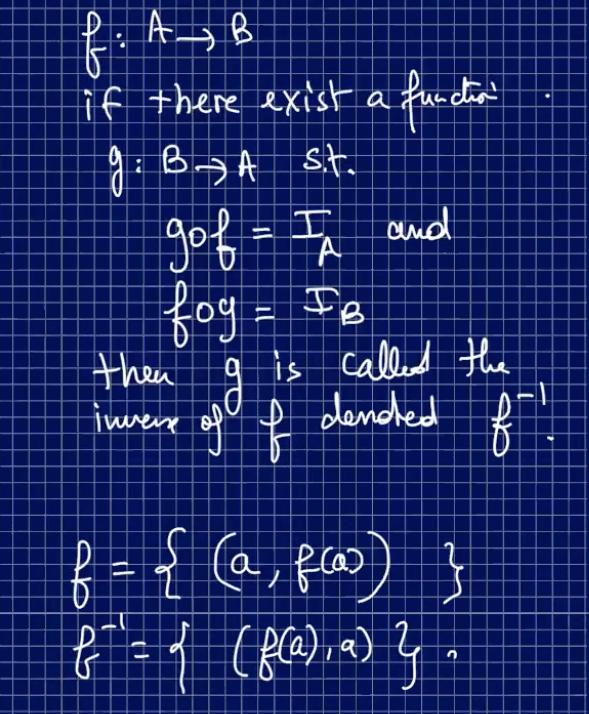 f: A → B
if there exist a function
g: B → A s.t.
gof = I_A and
fog = I_B
then g is called the
inverse of f denoted f⁻¹.
f = { (a, f(a)) }
f⁻¹ = { (f(a), a) }.